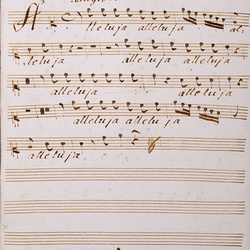 Alleluja alleluja al:
leluja alleluja
alleluja alleluja
alleluja alleluja
alleluja